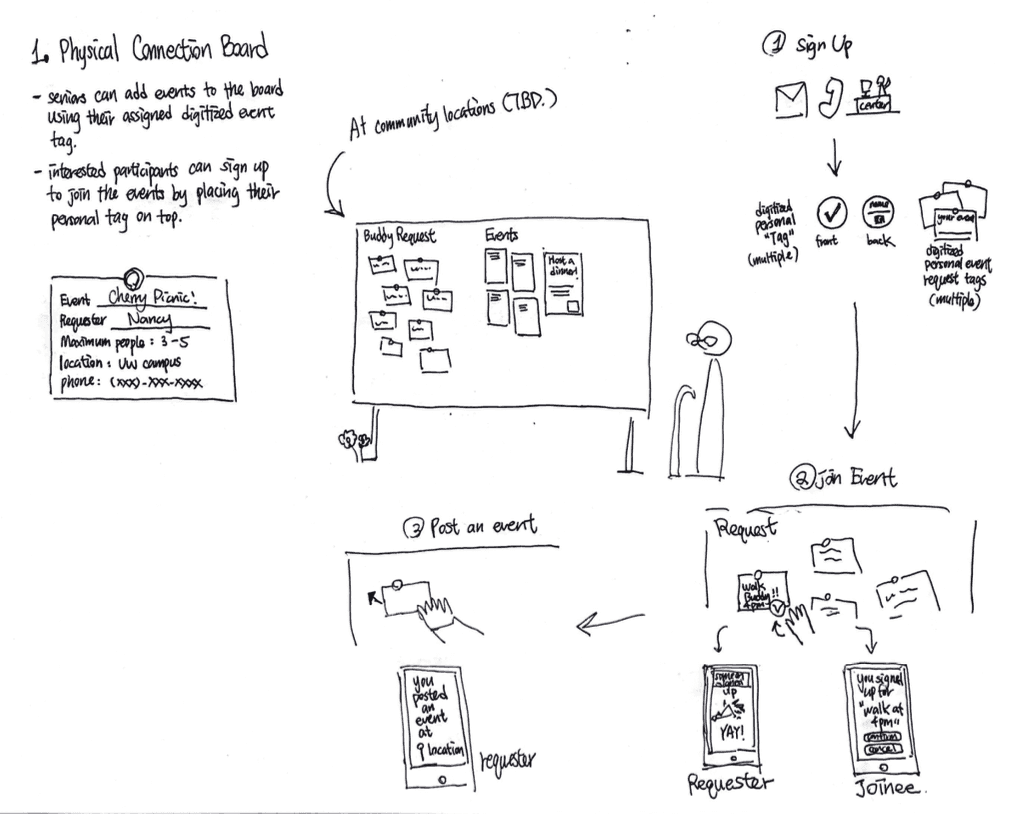 1. Physical Connection Board
- seniors can add events to the board
using their assigned digitized event
tag.
- interested participants can sign up
to join the events by placing their
personal tag on top.
Event Cherry Picnic!
Requester Nancy
Maximum people : 3-5
location : UW campus
phone : (xxx)-xxx-xxxx
At community locations (TBD.)
Buddy Request
Events
Host a
dinner!
1 Sign Up
center
digitized
personal
"Tag"
(multiple)
front
name
back
your event
digitized
personal event
request tags
(multiple)
2 Join Event
Request
Walk
Buddy!!
4pm~
signed
up
YAY!
Requester
You signed
up for
"walk at
4pm"
confirm
cancel
Joinee.
3 Post an event
you
posted
an
event
at
location
requester